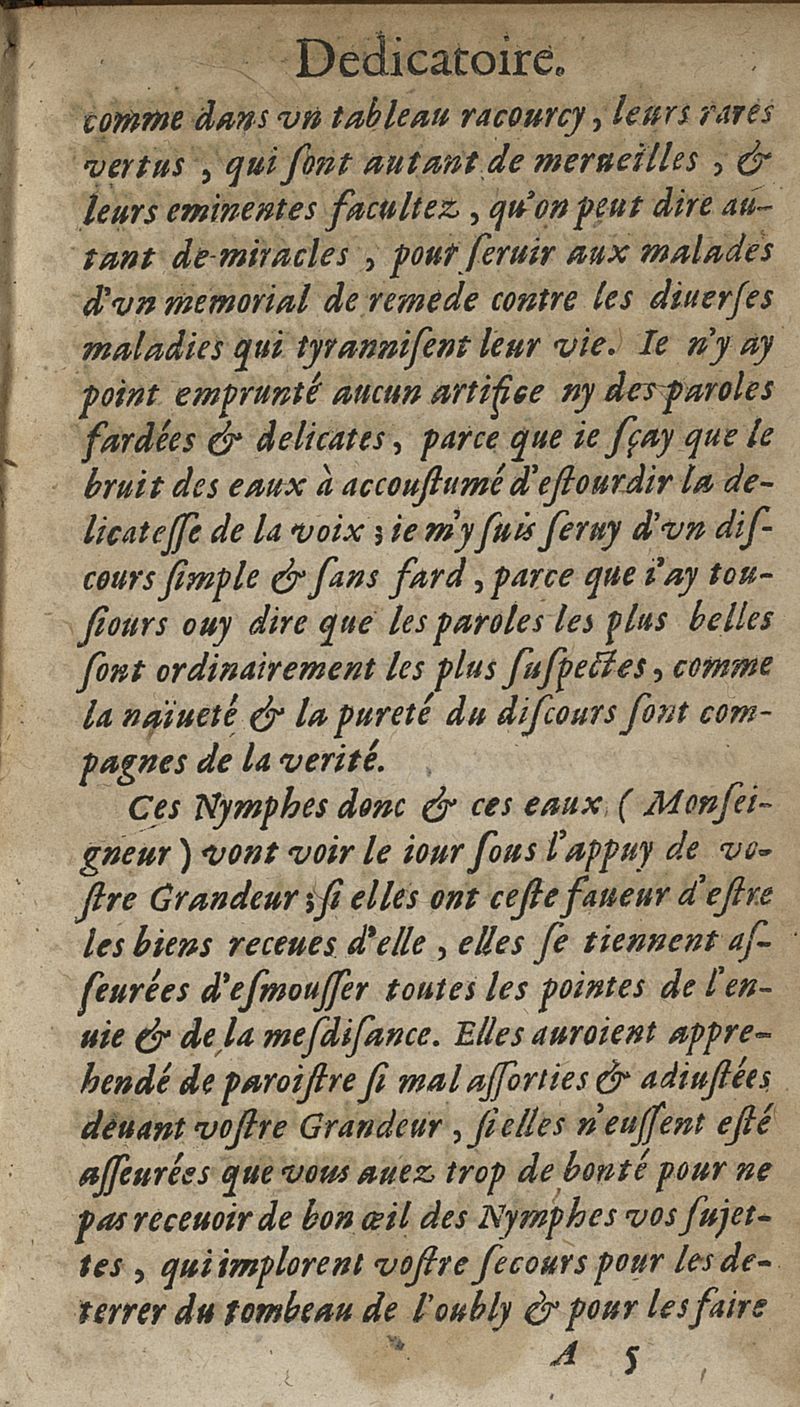 Dedicatoire.
comme dans vn tableau racourcy, leurs rares
vertus , qui ſont autant de merueilles , &
leurs eminentes facultez , qu'on peut dire au-
tant de miracles , pour ſeruir aux malades
d'vn memorial de remede contre les diuerſes
maladies qui tyranniſent leur vie. Ie n'y ay
point emprunté aucun artifice ny des paroles
fardées & delicates, parce que ie ſçay que le
bruit des eaux à accouſtumé d'eſtourdir la de-
licateſſe de la voix ; ie m'y ſuis ſeruy d'vn diſ-
cours ſimple & ſans fard , parce que i'ay tou-
ſiours ouy dire que les paroles les plus belles
ſont ordinairement les plus ſuſpectes, comme
la naïueté & la pureté du diſcours ſont com-
pagnes de la verité.
Ces Nymphes donc & ces eaux ( Monſei-
gneur ) vont voir le iour ſous l'appuy de vo-
ſtre Grandeur ; ſi elles ont ceſte faueur d'eſtre
les biens receues d'elle , elles ſe tiennent aſ-
ſeurées d'eſmouſſer toutes les pointes de l'en-
uie & de la meſdiſance. Elles auroient appre-
hendé de paroiſtre ſi mal aſſorties & adiuſtées
deuant voſtre Grandeur , ſi elles n'euſſent eſté
aſſeurées que vous auez trop de bonté pour ne
pas receuoir de bon œil des Nymphes vos ſujet-
tes , qui implorent voſtre ſecours pour les de-
terrer du tombeau de l'oubly & pour les faire
A 5